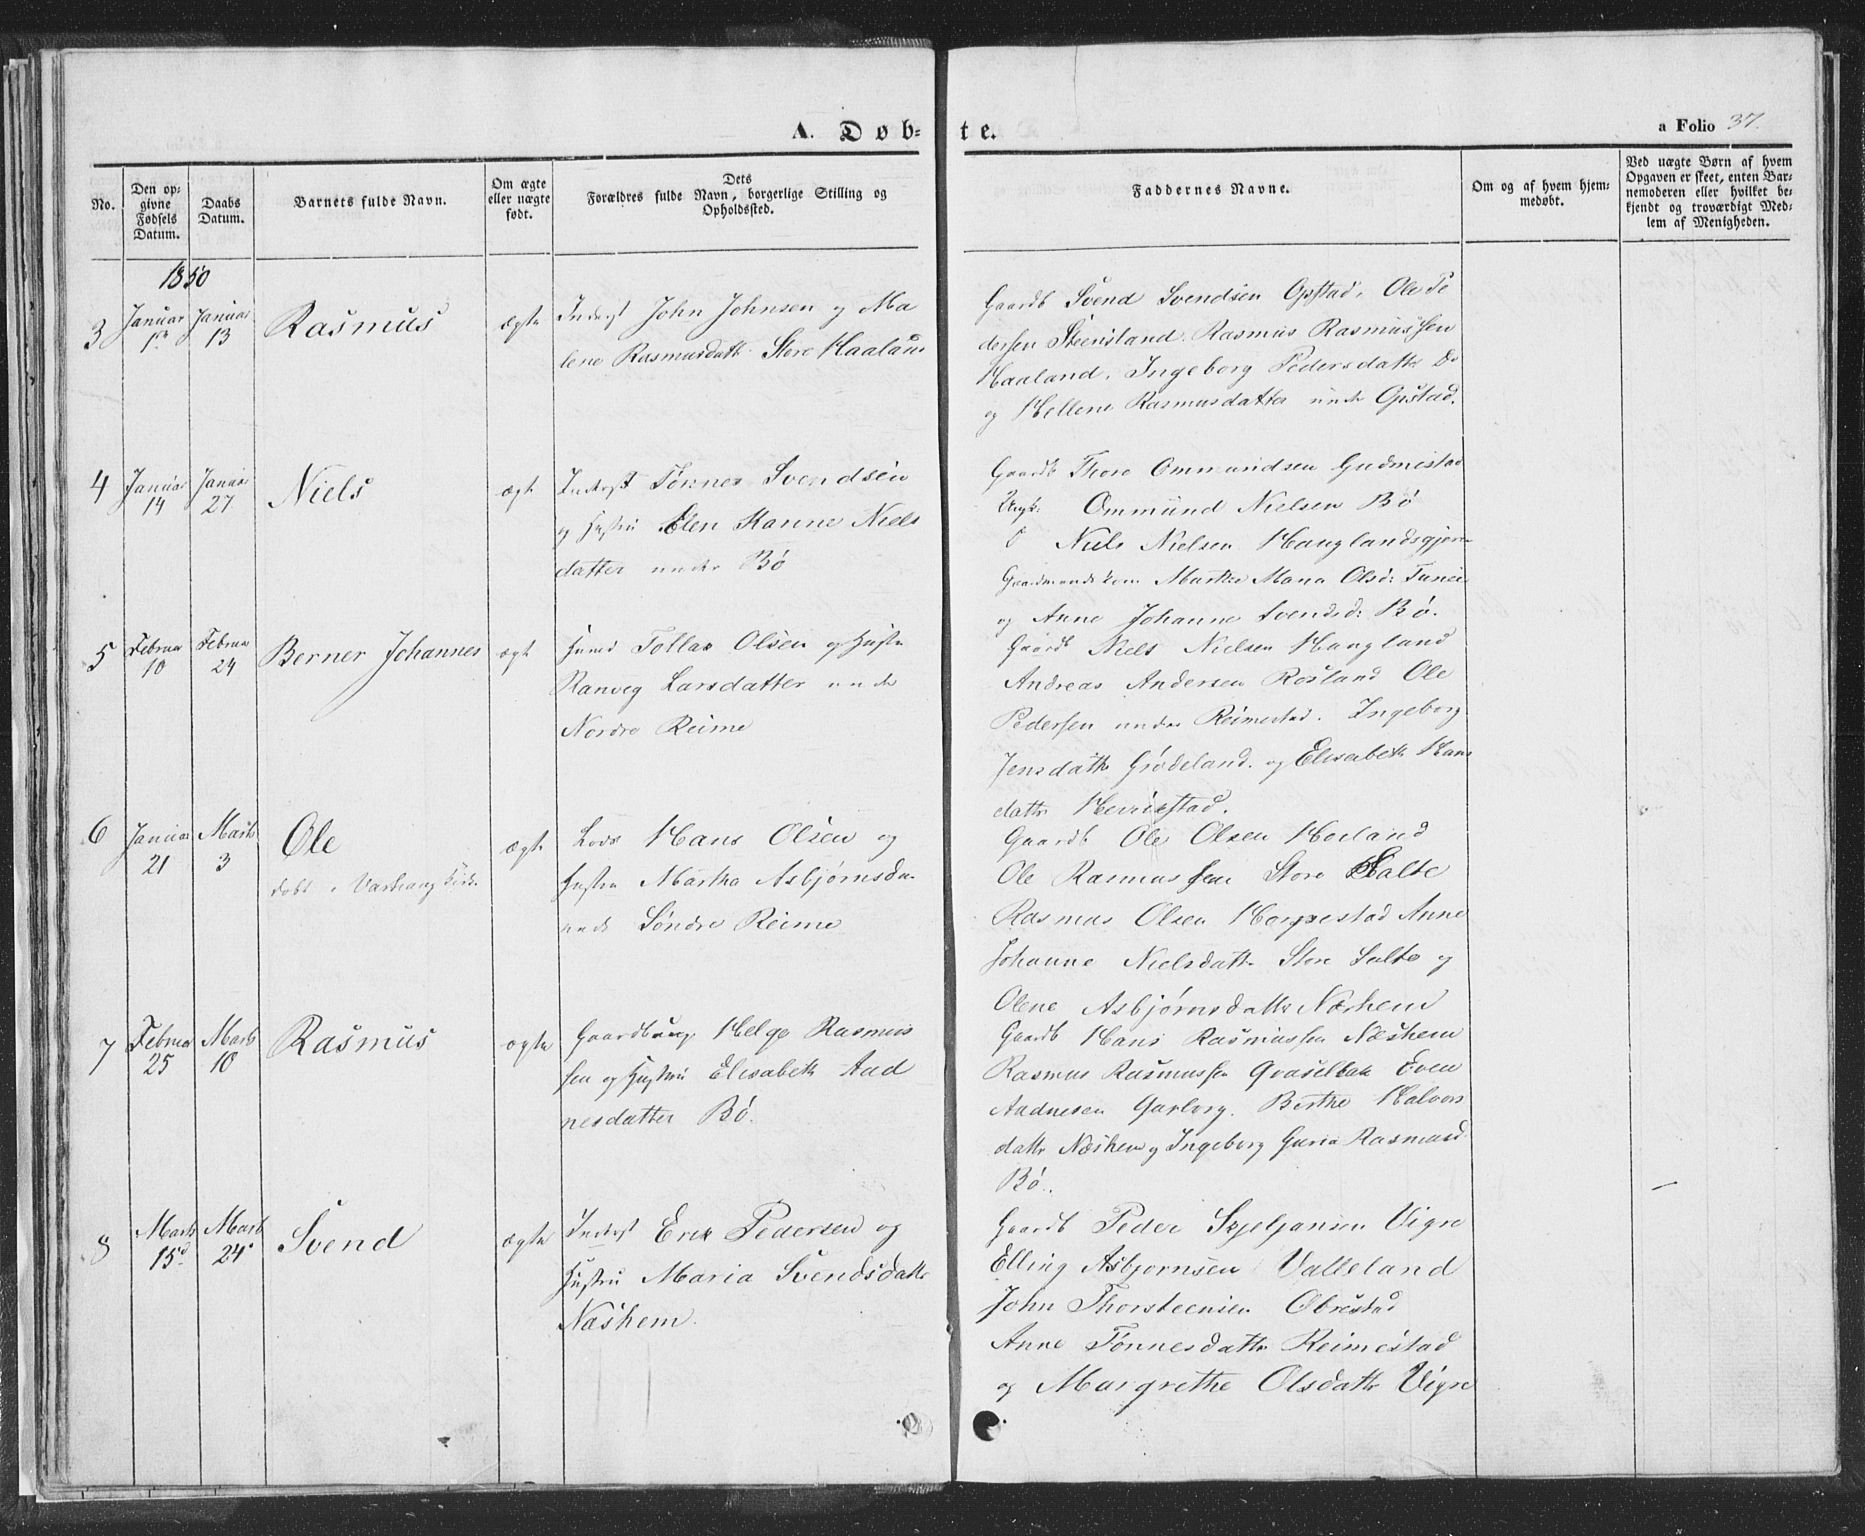 A. Døb-
te.
a Folio 37.
No.
Den op-
givne
Fødsels
Datum.
Daabs
Datum.
Barnets fulde Navn.
Om ægte
eller uægte
født.
Dets
Forældres fulde Navn, borgerlige Stilling og
Opholdssted.
Faddernes Navne.
Om og af hvem hjem-
medøbt.
Ved uægte Børn af hvem
Opgaven er skeet, enten Bar-
nemoderen eller hvilket be-
kjendt og troværdigt Med-
lem af Menigheden.
1850
3
Januar
Januar
13
Rasmus
ægte
Inderst John Johnsen og Ma
lene Rasmusdatt. Store Haaland
Gaardb Svend Svendsen Opstad, Ole Pe
dersen Steensland. Rasmus Rasmussen
Haaland. Ingeborg Pedersdatter Do
og Hellene Rasmusdatter under Opstad.
4
Januar
14
Januar
27
Niels
ægt
Inderst Tønnes Svendsen
og Hustru Elen Hanne Niels
datter under Bø
Gaardb Thore Ommundsen Gudmestad
Ungk: Ommund Nielsen Bø
Niels Nielsen Hauglandsgjer
Gaardmands kone Marthe Mana Olsd:
og Anne Johanne Svendsd: Bø.
5
Februar
10
Februar
24
Berner Johannes
ægt
Huusmd Tollax Olsen og Hustru
Ranveg Larsdatter under
Nordre Reime
Gaardb Niels Nielsen Haugland
Andreas Andersen Rosland Ole
Pedersen under Reimestad. Ingeborg
Jensdatter Grødeland. og Elisabeth Hans
datter Herrestad.
6
Januar
21
Marts
3
Ole
døbt i Varhaug Kirke
ægte
Lods Hans Olsen og
Hustru Martha Asbjørnsda
under Søndre Reime
Gaardb Ole Olsen Horland
Ole Rasmussen Store Salte
Rasmus Olsen Horpestad Anne
Johanne Nielsdatter Store Salte og
Olene Asbjørnsdatter Næshem
7
Februar
25
Marts
10
Rasmus
ægte
Gaardbrug Helge Rasmus
sen og Hustru Elisabeth Aad
nesdatter Bø.
Gaardb Hans Rasmussen Næshem
Rasmus Rasmussen Qvaselbak Even
Aadnesen Garborg. Berthe Halvors
datter Næshem og Ingeborg Guria Rasmusd
Bø.
8
Marts
15d
Marts
24
Svend
ægte
Inderst Erik Pedersen og
Hustru Maria Svendsdatter
Næshem.
Gaardb Peder Skjeljansen Vigre
Elling Asbjørnsen Valleland
John Thorsteensen Obrestad
Anne Tønnesdatter Reimestad
og Margrethe Olsdatter Vigre